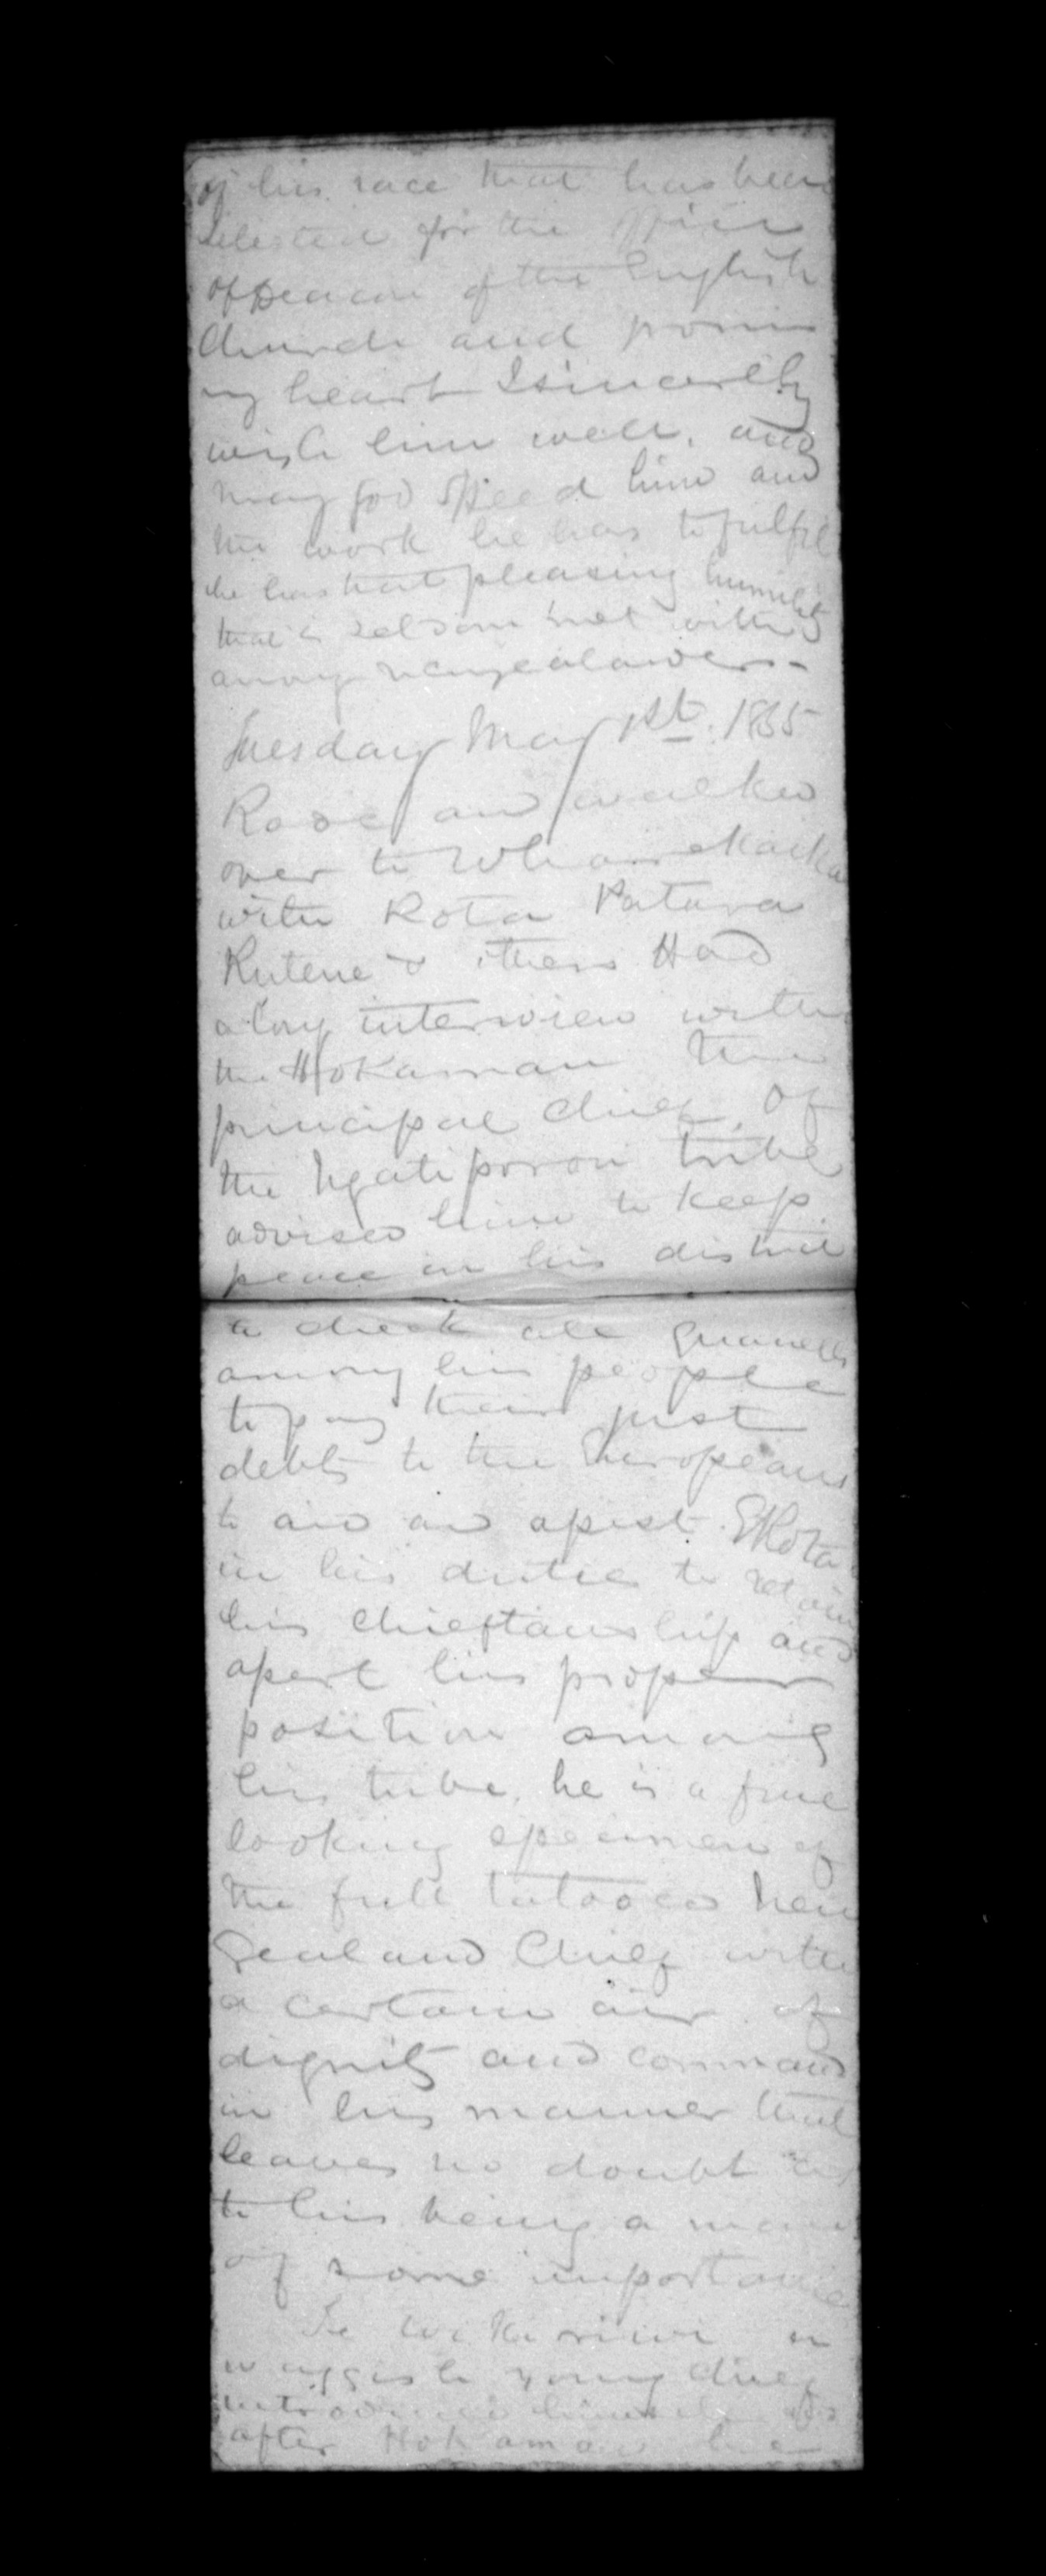 of his race that has been
selected for the office
of Deacon of the English
Church and from
my heart I sincerely
wish him well, and
may god speed him and
the work he has to fulfil
he has that pleasing humility
that is seldom met with
among
Tuesday May 1st. 1865
Rose and walked
over to Wharekaika
with Rota Patara
Rutene & others Had
a long interview with
the Hokamau the
principal chief of
the Ngatiporou tribe
advised him to keep
peace in his district
to check all quarrells
among his people
to pay their just
debts to the Europeans
to aid and asist ERota
in his duties to retain
his chieftainship and
asert his proper
position among
his tribe. he is a fine
looking specimen of
the full tatooed New
Zealand Chief with
a certain air of
dignity and command
in his manner that
leaves no doubt as
to his being a man
of some importance
Te Wikiriwi
waggish young chief
introduced himself
after Hokamau